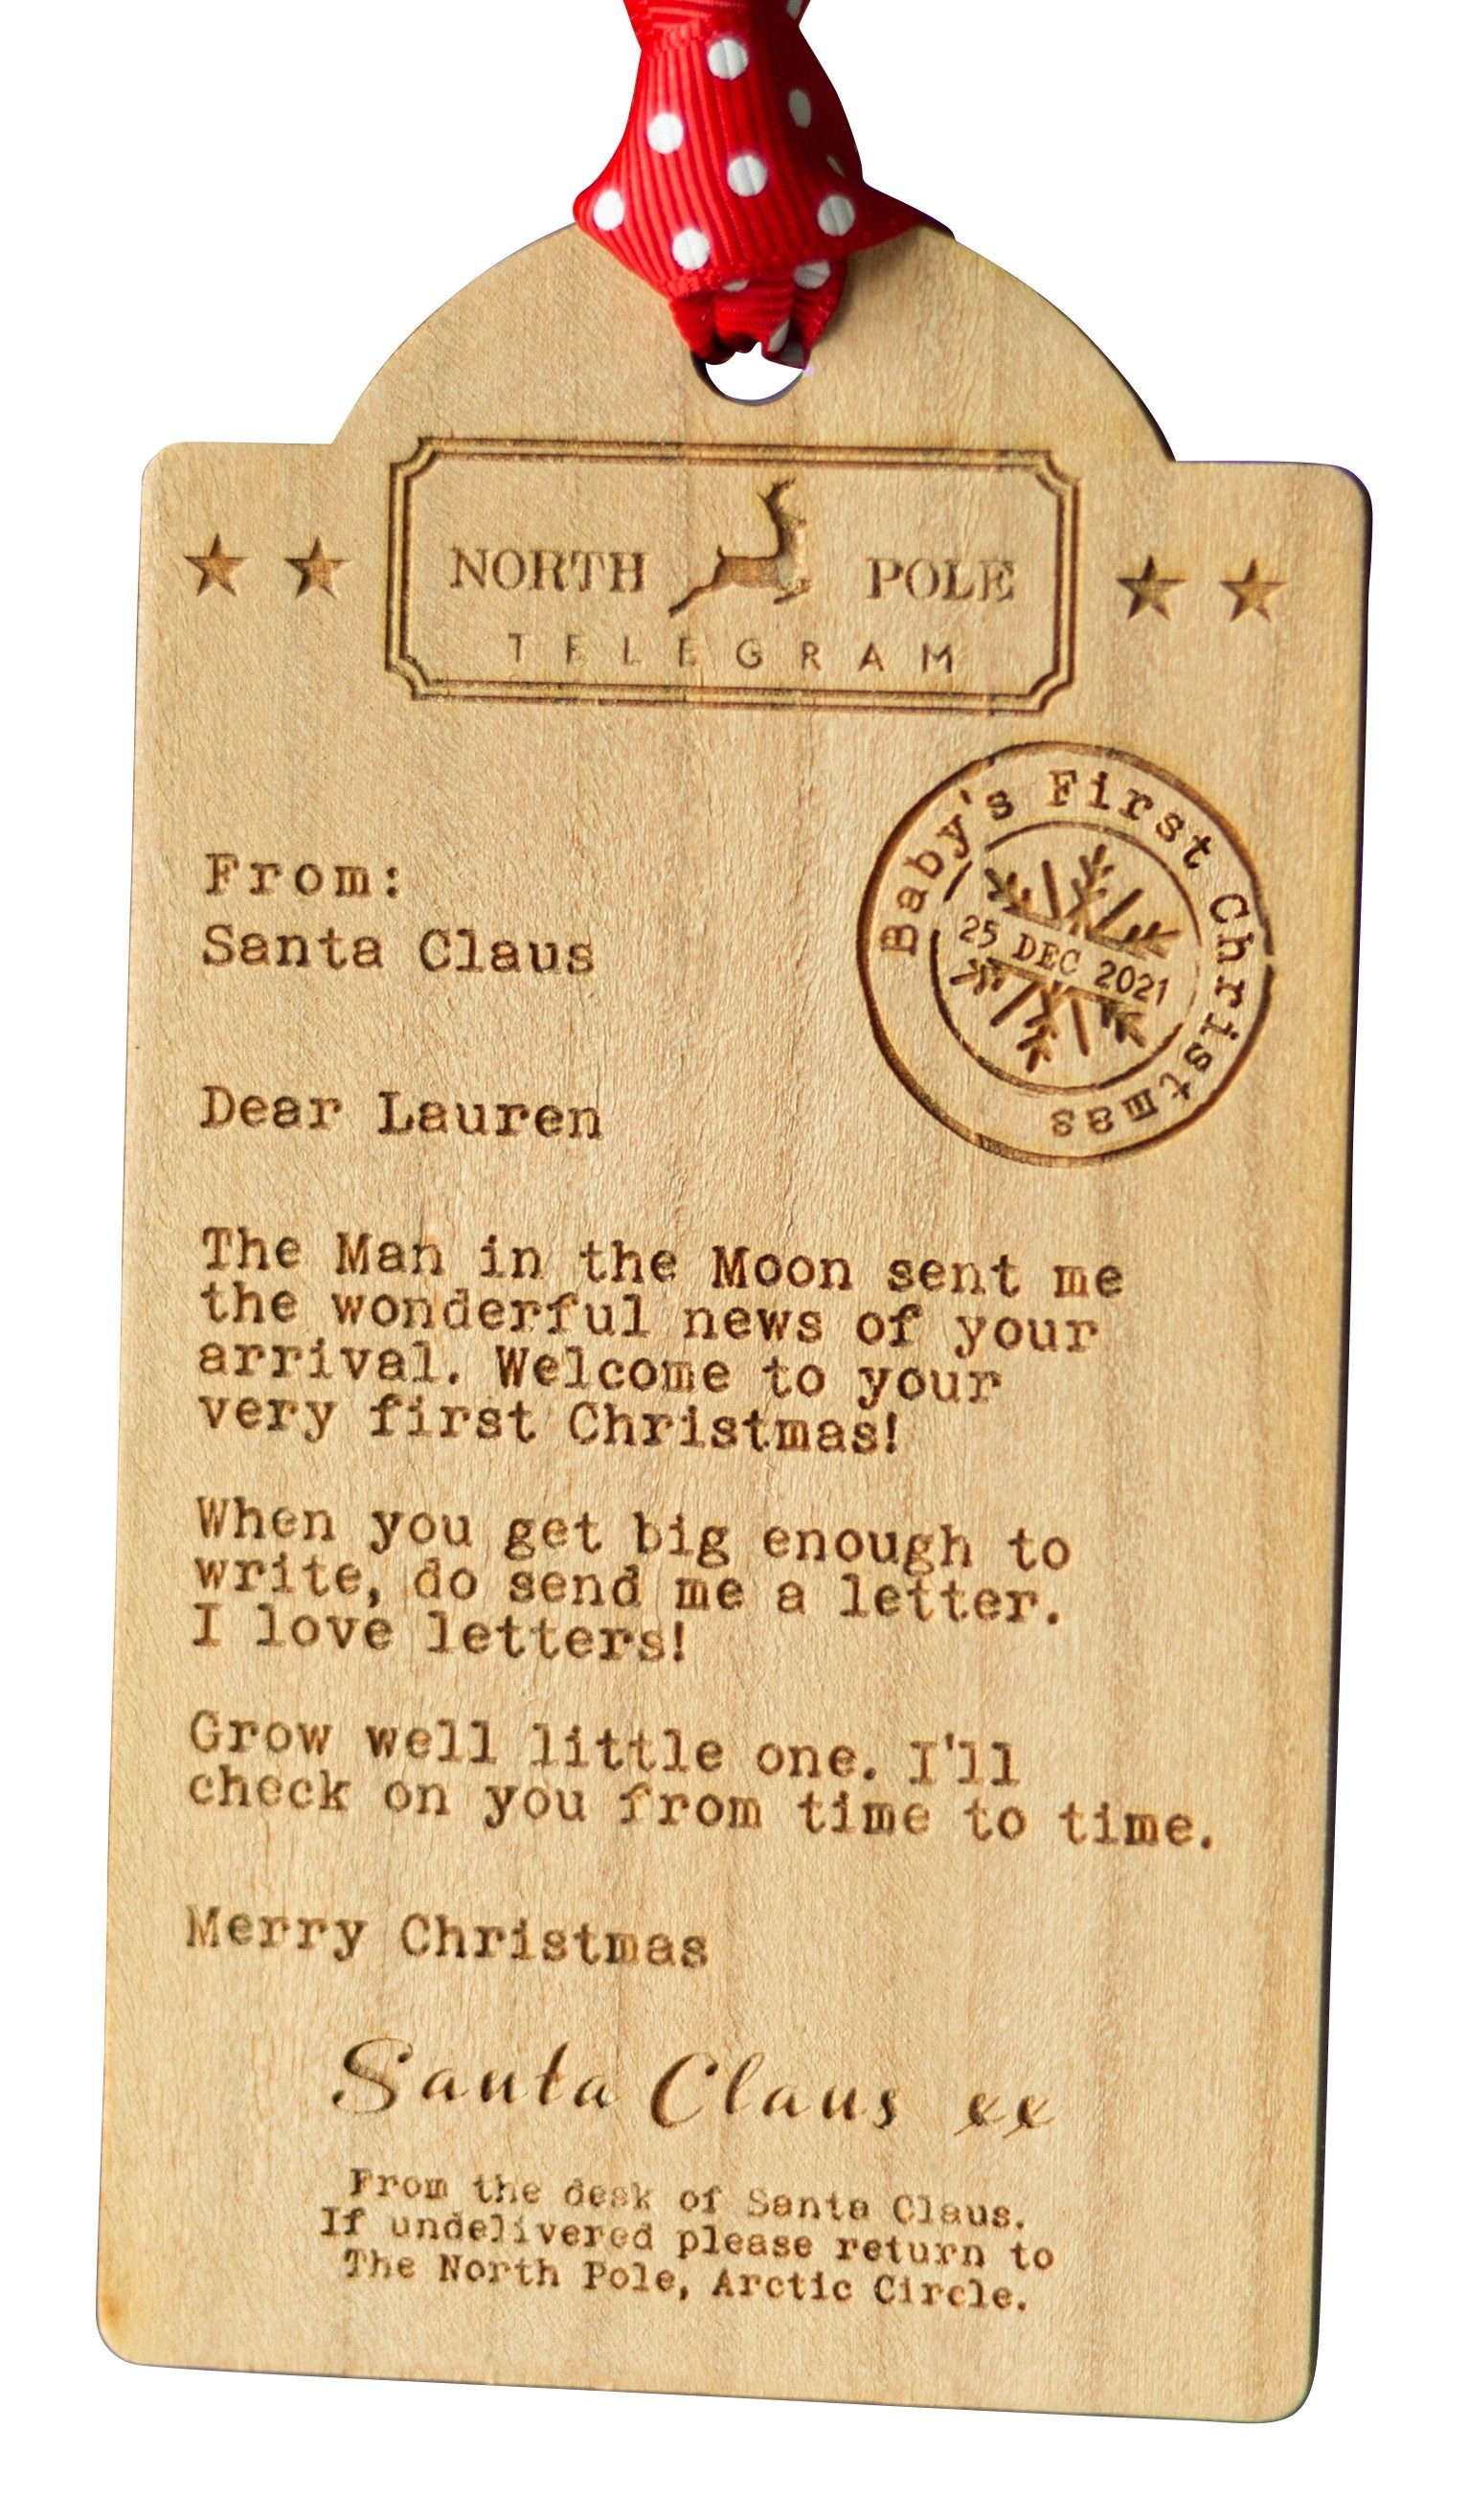 NORTH POLE
TELEGRAM
Baby's First Christmas
25 DEC 2021
From:
Santa Claus
Dear Lauren
The Man in the Moon sent me
the wonderful news of your
arrival. Welcome to your
very first Christmas!
When you get big enough to
write, do send me a letter.
I love letters!
Grow well little one. I'll
check on you from time to time.
Merry Christmas
Santa Claus xx
From the desk of Santa Claus.
If undelivered please return to
The North Pole, Arctic Circle.